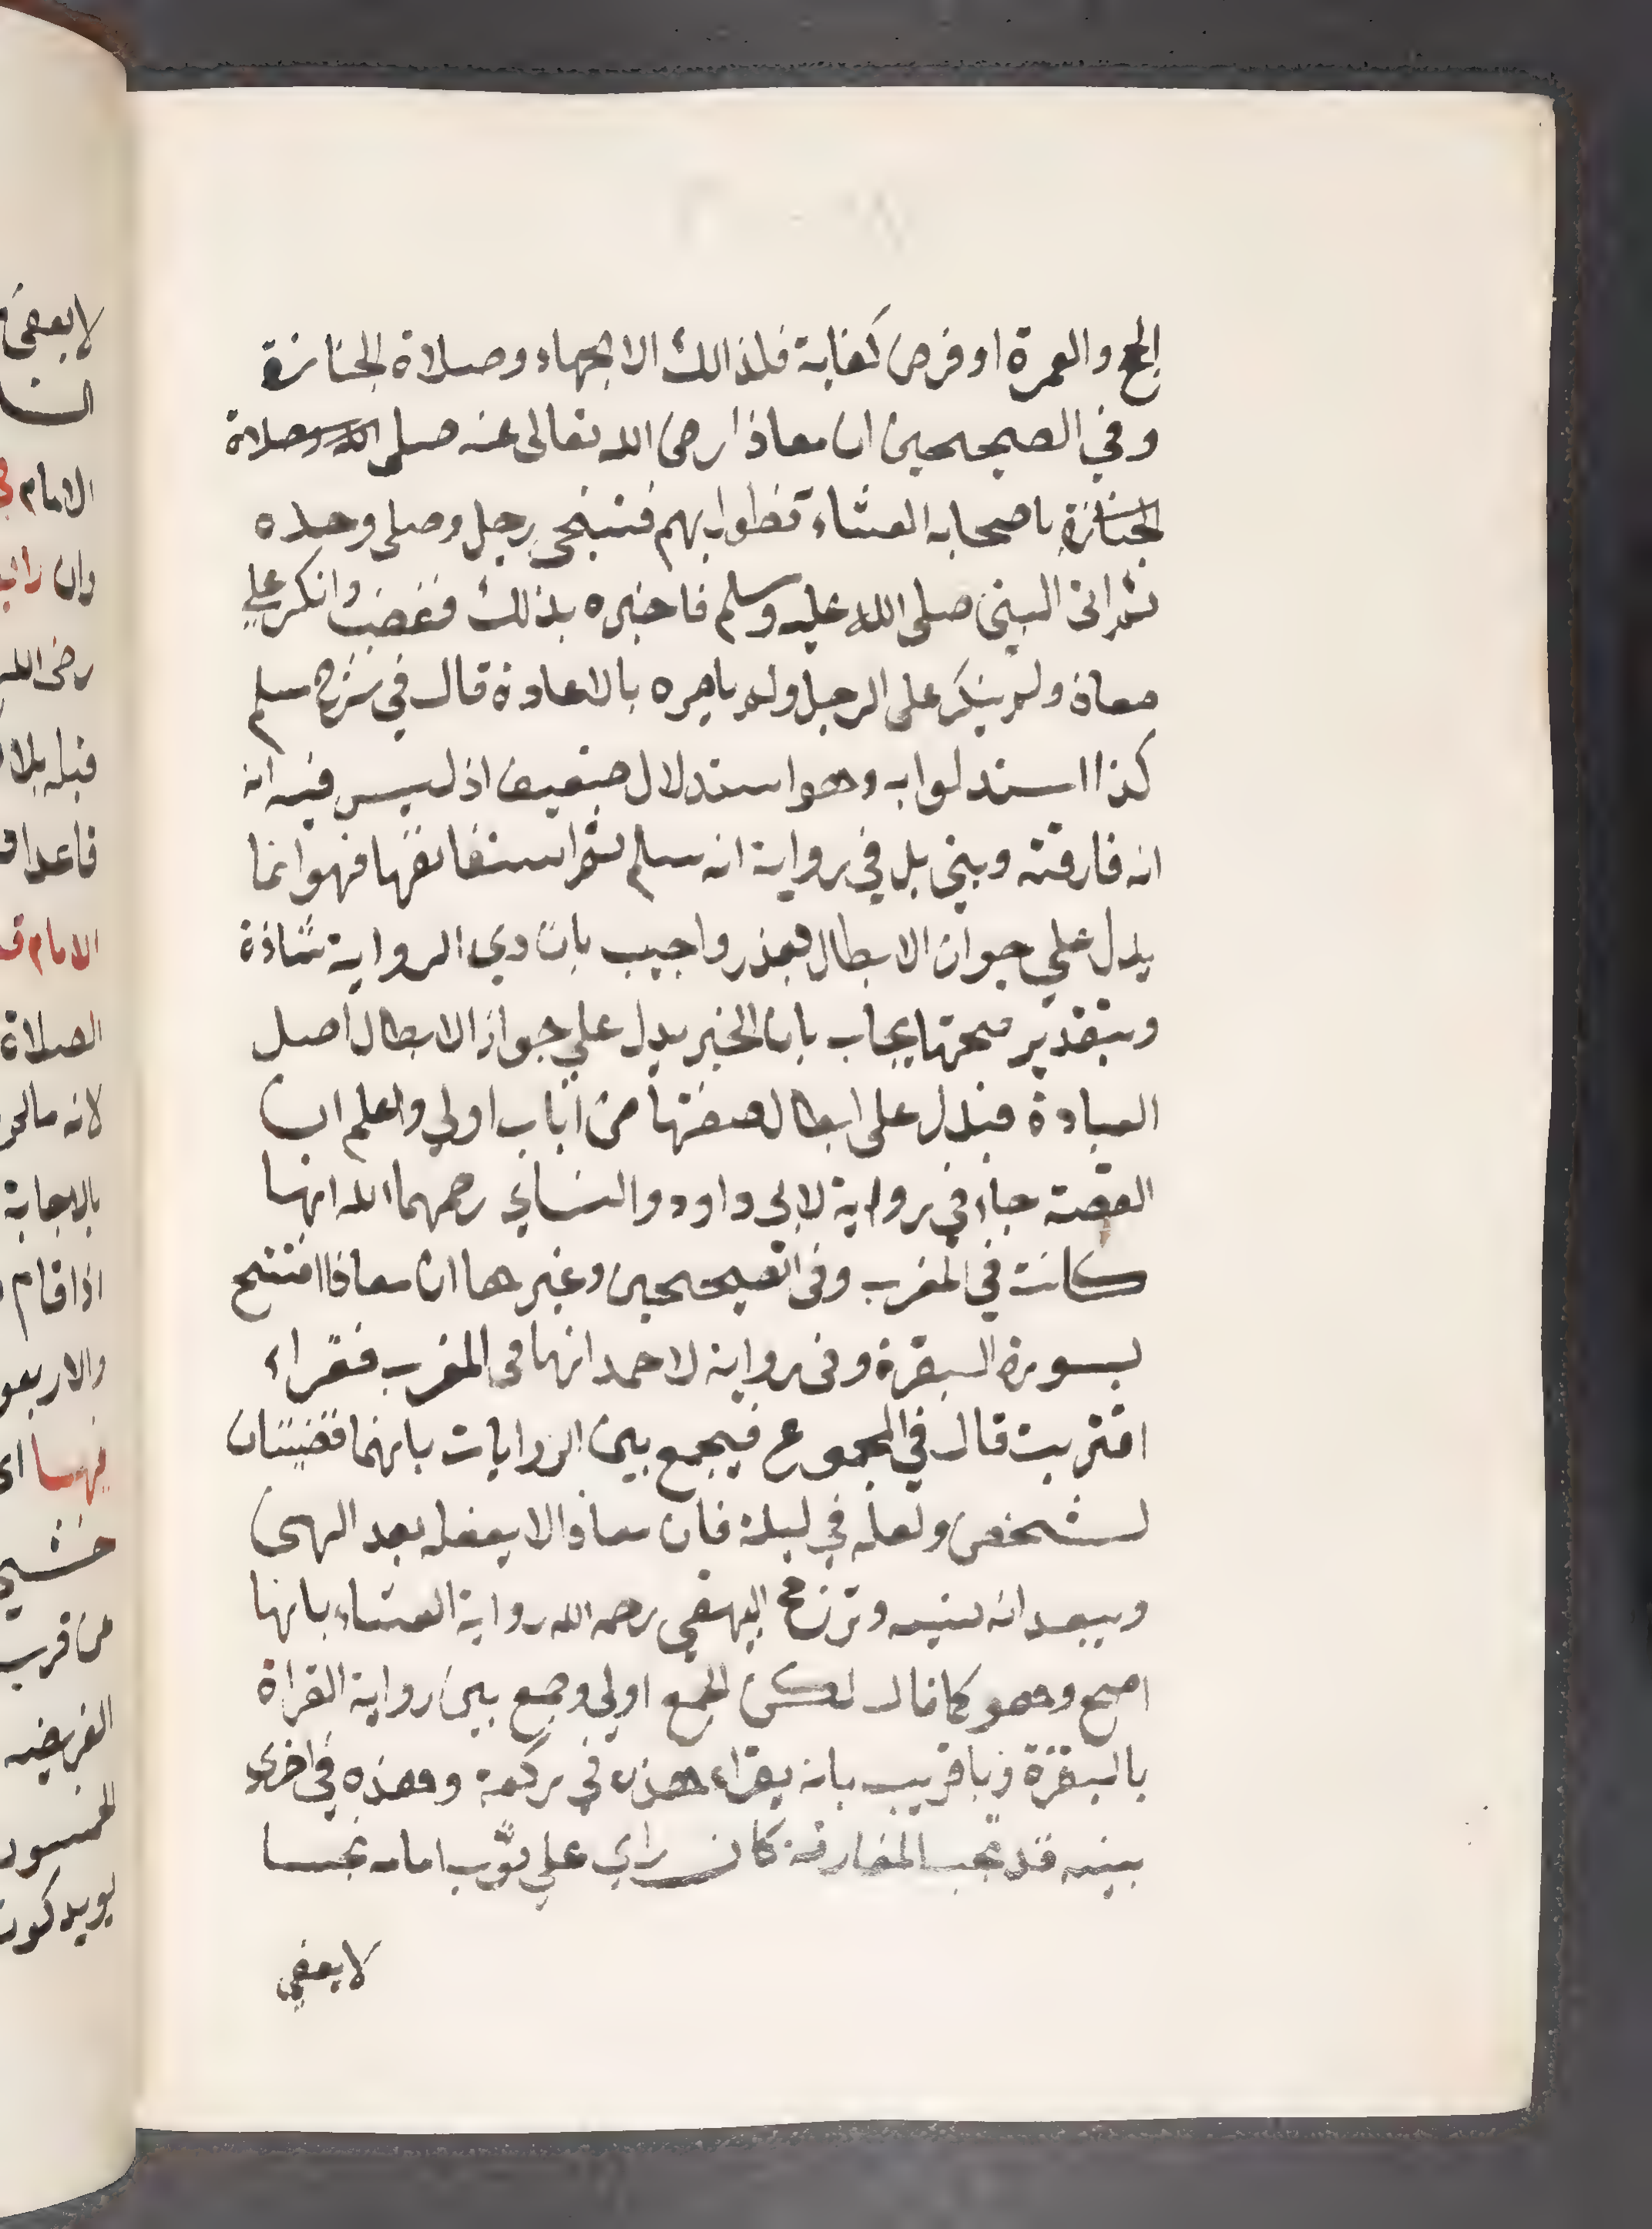 الحج والعمرة او فرض كفاية فلذالك الا الجهاد وصلاة الجنازة
وفي الصحيحين ان معاذا رضى الله تعالى عنه صلى الله وصلاة
الجنازة باصحابه العشاء فطول بهم فتنحى رجل وصلى وحده
ثم اتى النبي صلى الله عليه وسلم فاخبره بذلك فغضب وانكر على
معاذ ولم ينكر على الرجل ولم يامره بالاعادة قال في شرح مسلم
كذا استدلوا به وهو استدلال ضعيف اذ ليس فيه انه
انه فارقته وبنى بل في رواية انه سلم ثم استفانفها فهو انما
يدل علي جواز الابطال لعذر واجيب بان دي الرواية شاذة
وبتقدير صحتها يجاب بان الخبر يدل علي جواز الابطال اصل
العبادة فيدل على ابطال صفتها من اباب اولي واعلم ان
القصة جاء في رواية لابي داود والنساي رحمهما الله انها
كانت في المغرب وفى الصحيحين وغيرها ان معاذا افتتح
بسورة البقرة وفى رواية لاحمد انها فى المغرب فقراء
اقتربت قال في المجموع فيجمع بين الروايات بانهما قضيتان
لشخص ولعله في ليلة فان معاذ الا يفعله بعد النهى
ويبعد انه نسيه وترجح البيهقي رحمه الله رواية العشاء بانها
اصح وهو كما قال لكن الجمع اولي وجمع بين رواية القراة
بالبقرة وباقريب بانه يقراء هذه في ركعة وهذه في اخري
بينه قد تجب المفارقة كان راي علي ثوب امامه نجسا
لا يعفي
لا يعفى
النسا
الامام
وان راي
رضى الله
قبله بلا
قاعدا
الامام قد
الصلاة
لانه مالحر
بالاجابة
اذا قام
والاربعو
فيهما
خشي
من قرب
الفريضه
للمسبو
يويد كون